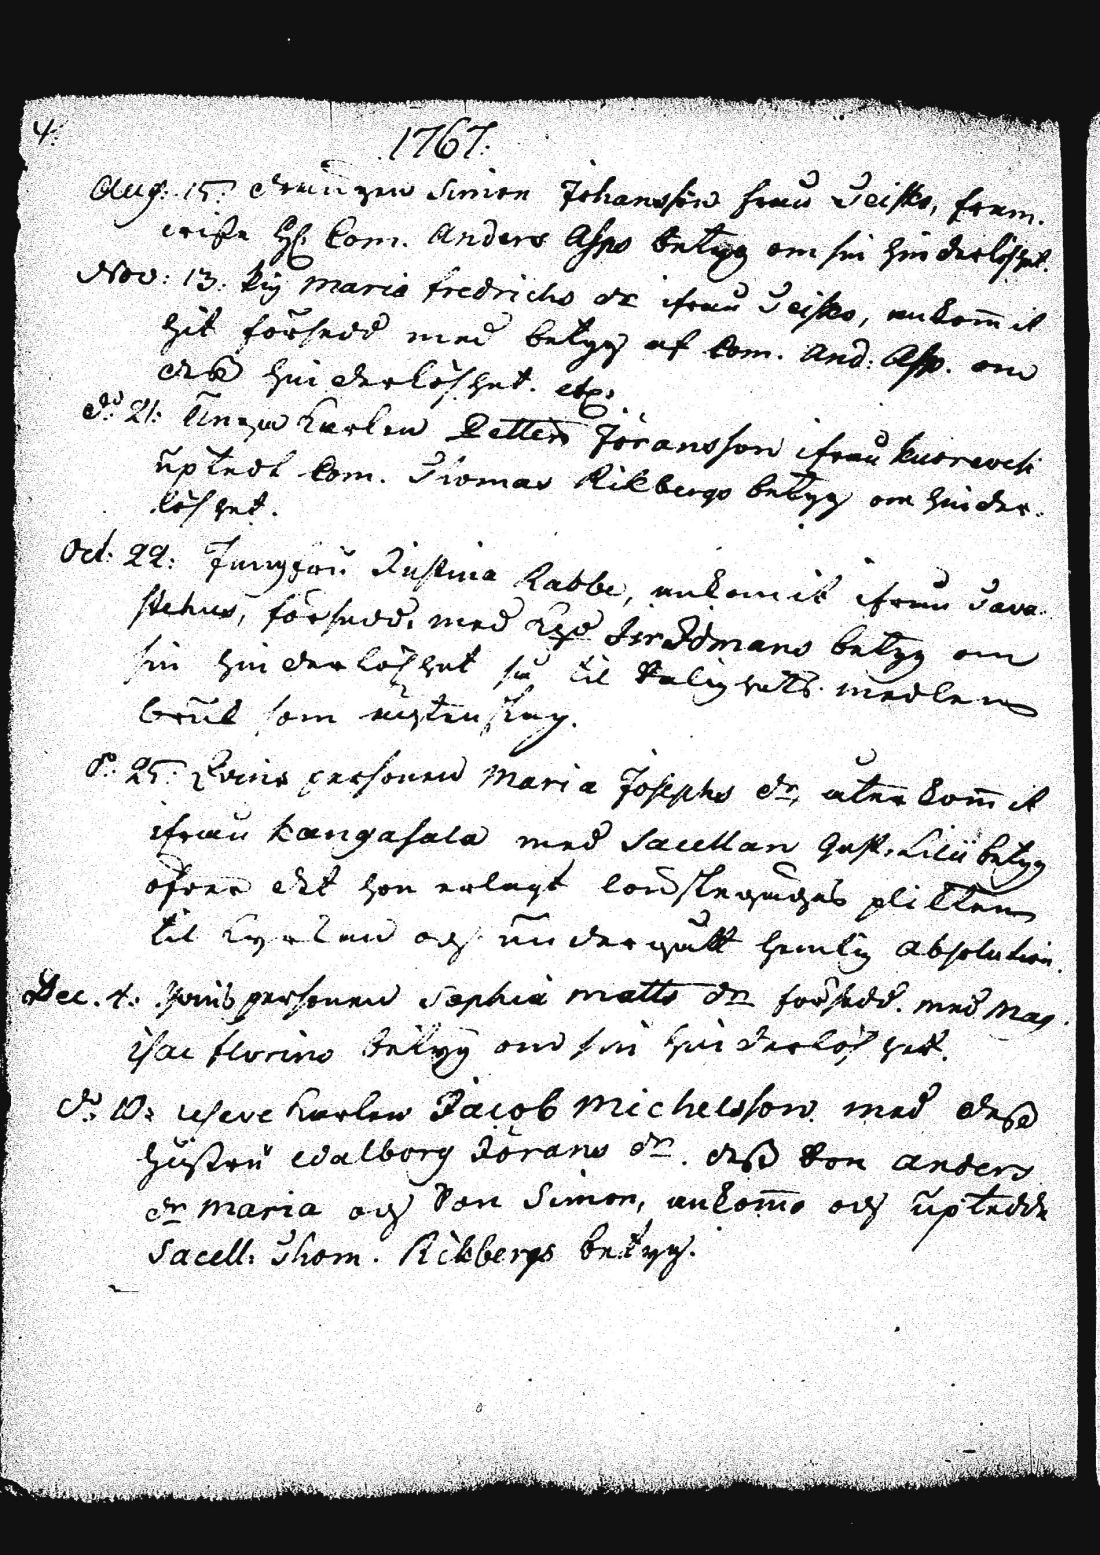 4.
1767.
Aug: 15: drängen Simon Johansson från Teisko, fram
wiste H. Com. Anders Asps betyg om sin hinderlöshet.
Nov: 13. Pig Maria Fredrichs dr ifrån Teisko, ankommit
hit försedd med betyg af Com. And: Asp. om
dess hinderlöshet. etc.
d: 21: Unga Karlen Petter Jöransson ifrån Kuorevesi
uptedt Com. Thomas Rikbergs betyg om hinder-
löshet.
Oct: 22: Jungfru Justina Rabbe, ankomit ifrån Tava-
stehus, försedd med betyg om
sin hinderlöshet så til Salighets medlens
bruk som ächtenskap.
d: 25: Qvins personen Maria Josephs dr, återkommit
ifrån Kangasala med Sacellan Gust. Lilii betyg
öfver det hon erlagt lönskeläges plickten
til Kyrkan och undergått hemlig absolution.
Dec. 4. Qvins personen Sophia Matts dr försedd med Mag.
Isac Florins betyg om sin hinderlöshet.
d: 10: Karlen Jacob Michelsson med dess
hustru Walborg Jörans dr. dess Son Anders
dr Maria och Son Simon, ankomo och uptedde
Sacell: Thom. Rikbergs betyg.